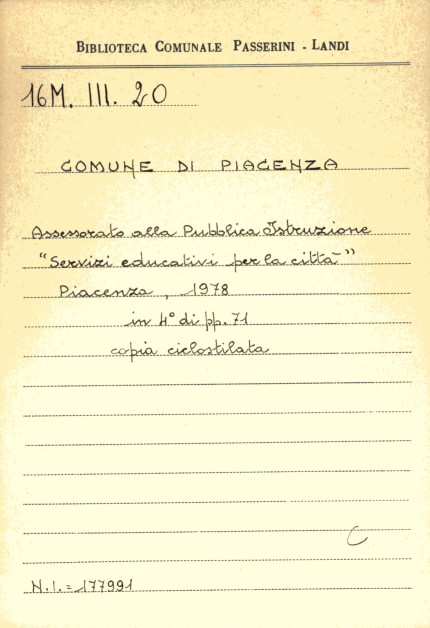 BIBLIOTECA COMUNALE PASSERINI - LANDI
16M. III. 20
COMUNE DI PIACENZA
Assessorato alla Pubblica Istruzione
"Servizi educativi per la città"
Piacenza, 1978
in 4° di pp. 71
copia ciclostilata
C
N.I. = 177991